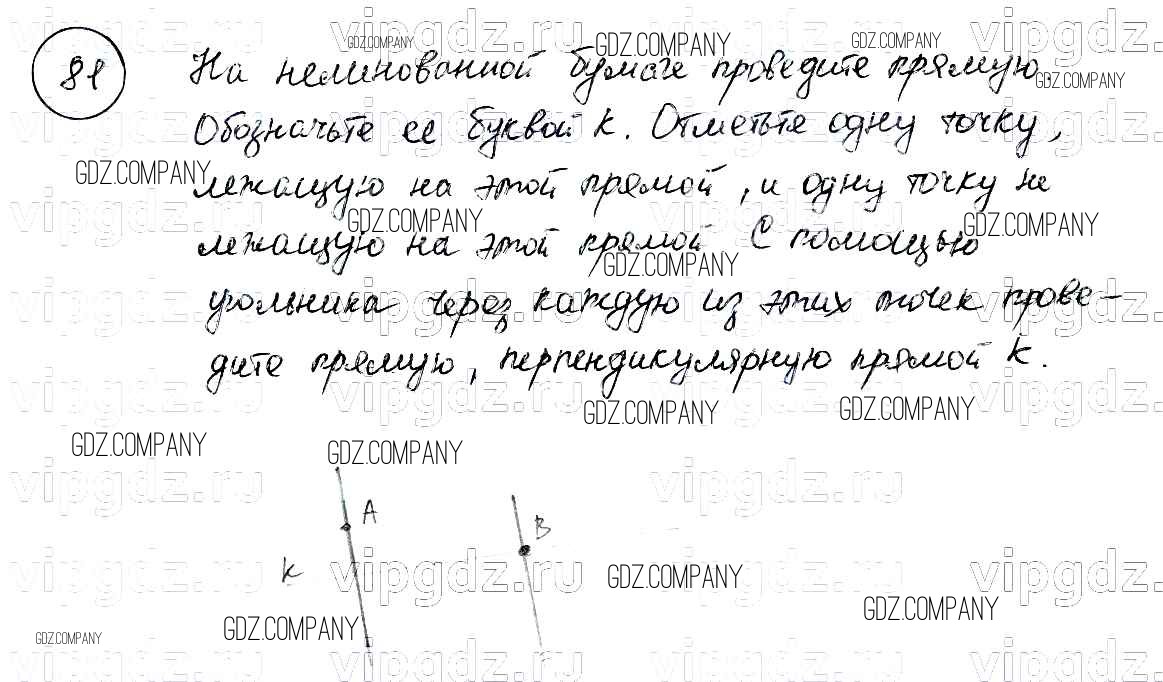 81
На нелинованной бумаге проведите прямую.
Обозначьте ее буквой k. Отметьте одну точку,
лежащую на этой прямой, и одну точку не
лежащую на этой прямой. С помощью
угольника через каждую из этих точек прове-
дите прямую, перпендикулярную прямой k.
A
B
k
vipgdz.ru
GDZ.COMPANY